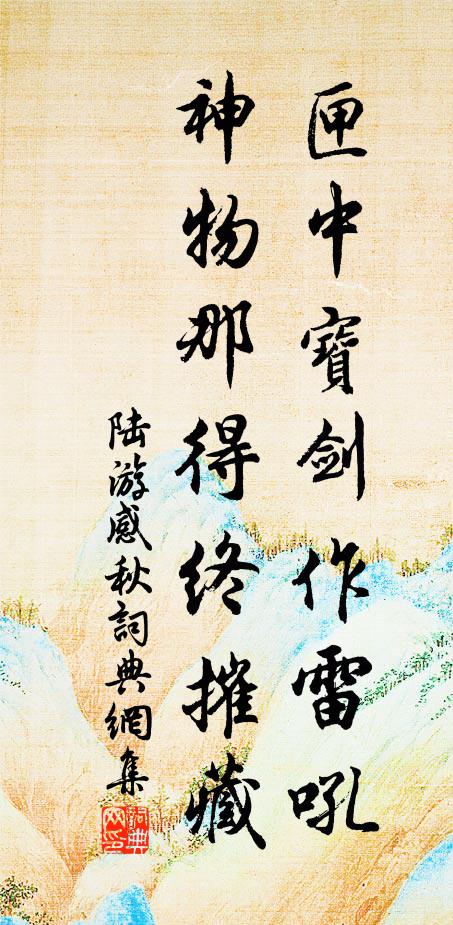 匣中寶劍作雷吼
神物那得終摧藏
陆游感秋詞典網集
詞典
网印